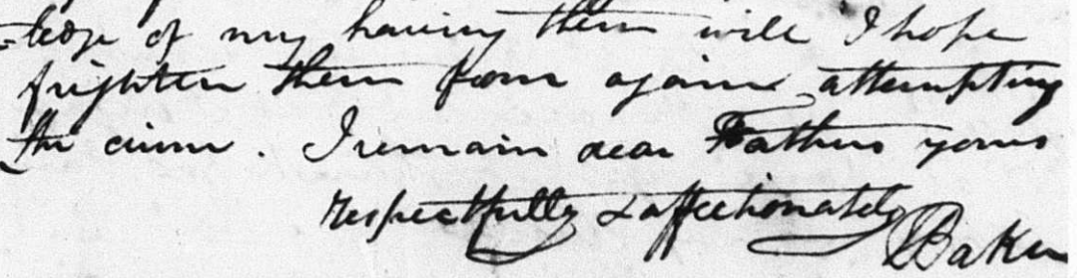 -ledge of my having them will I hope
frighten them from again attempting
the crime. I remain dear Father yours
respectfully & affectionately
Baker